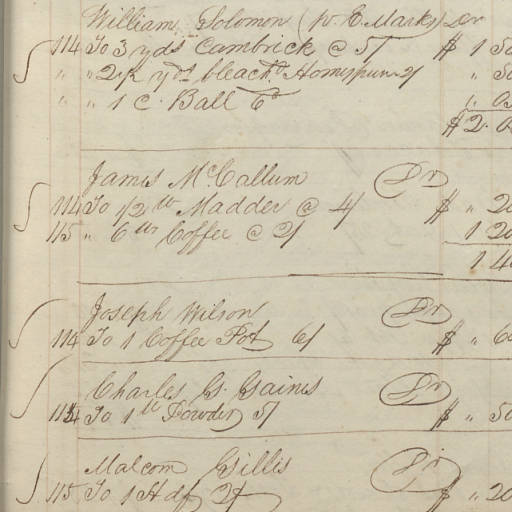 William Solomon (pr E. Marks) Dr
114 To 3 yds Cambrick @ 5/ $ 1 50
" " 2 1/2 yds bleachd Homespun 2/ " 50
" " 1 C. Ball 6d
$ 2.0
James McCallum Dr
114 To 1/2 lb Madder @ 4/ $ " 20
115 " 6 lbs Coffee @ 2/ 1 20
1 40
Joseph Wilson Dr
114 To 1 Coffee Pot 6/ $ " 60
Charles G. Gainis Dr
114 To 1 lb Powder 5/ $ " 50
Malcom Gillis Dr
115 To 1 Hdf 2/ $ " 20